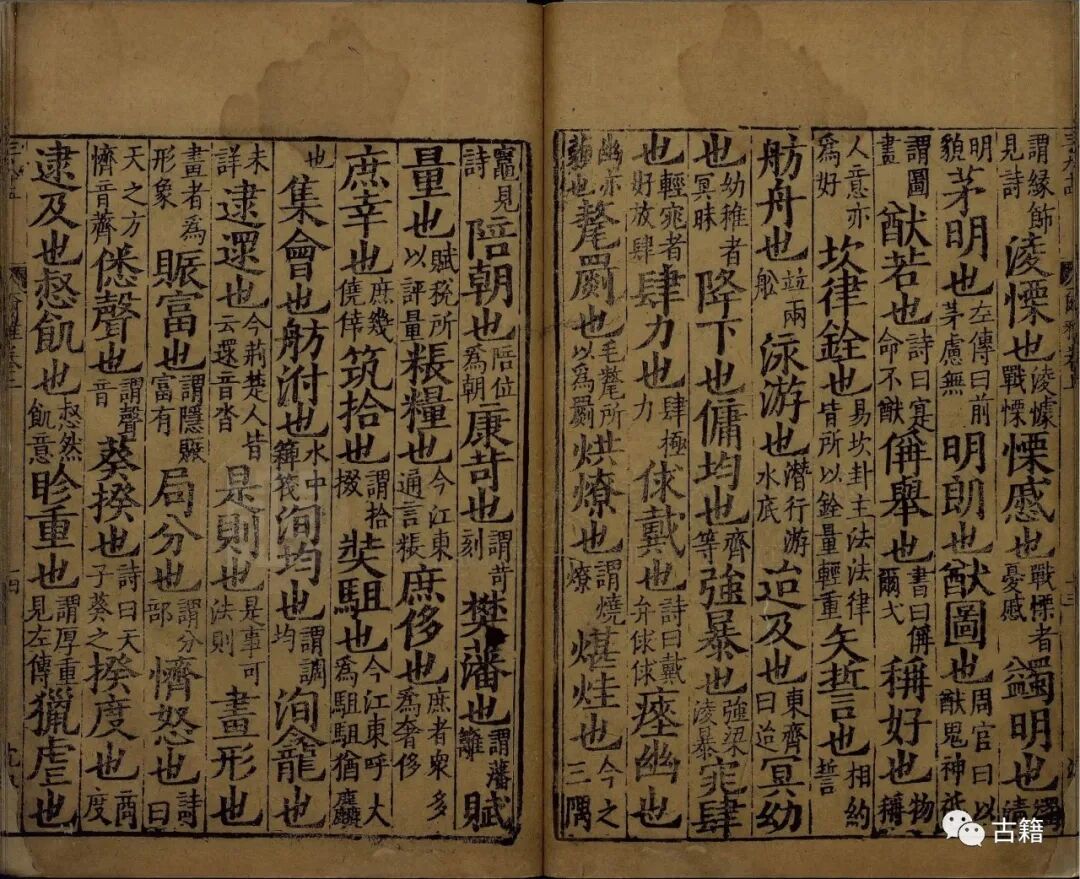 謂緣飾見詩淩慄也淩懅戰慄慄慼也戰慄者憂慼蠲明也蠲清
明貌茅明也左傳曰前茅慮無明朗也猷圖也周官曰以猷鬼神祇
謂圖畫猷若也詩曰寔命不猷偁舉也書曰偁爾戈稱好也物稱
人意亦為好坎律銓也易坎卦主法法律皆所以銓量輕重矢誓也相約誓
舫舟也並兩船泳游也潛行游水底迨及也東齊曰迨冥幼
也幼稚者冥昧降下也傭均也齊等強暴也強梁淩暴窕肆
也輕窕者好放肆肆力也肆極力俅戴也詩曰戴弁俅俅瘞幽也
幽亦薶也氂罽也毛氂所以為罽烘燎也謂燒燎煁烓也今之三隅
竈見詩陪朝也陪位為朝康苛也謂苛刻樊藩也謂藩籬賦
量也賦稅所以評量粻糧也今江東通言粻庶侈也庶者衆多為奢侈
庶幸也庶幾僥倖筑拾也謂拾掇奘駔也今江東呼大為駔駔猶麤
也集會也舫泭也水中箄筏洵均也謂調均洵龕也
未詳逮遝也今荊楚人皆云遝音沓是則也是事可法則畫形也
畫者為形象賑富也謂隱賑富有局分也謂分部懠怒也詩曰
天之方懠音薺僁聲也謂聲音葵揆也詩曰天子葵之揆度也商度
逮及也惄飢也惄然飢意眕重也謂厚重見左傳獵虐也
古籍